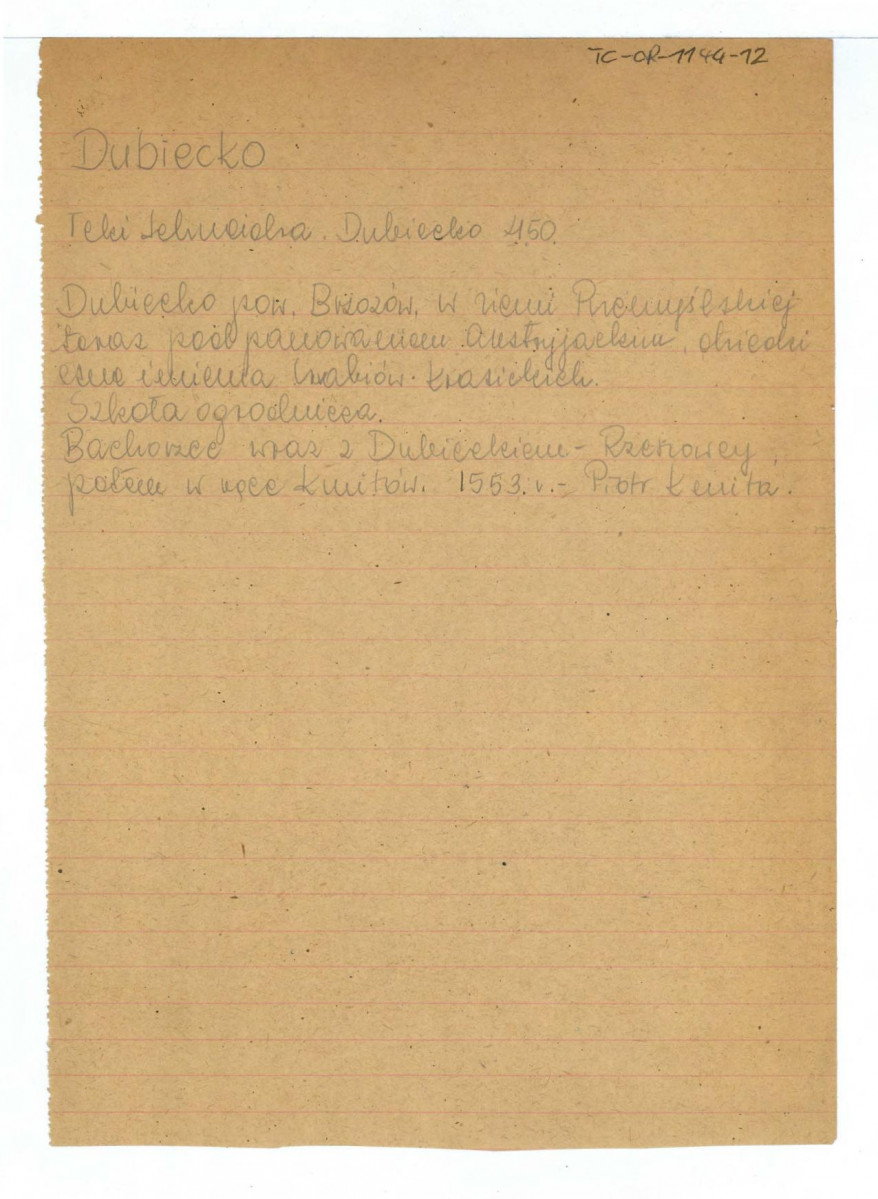 TC-OR-1144-12
Dubiecko
Teki Schneidra. Dubiecko 450.
Dubiecko pow. Brzozów, w ziemi Przemyślskiej
teraz pod panowaniem Austryjackim, dziedzi
czne imienia hrabiów Krasickich.
Szkoła ogrodnicza.
Bachorzec wraz z Dubieckiem -
potem w ręce Kmitów. 1553. r. - Piotr Kmita.